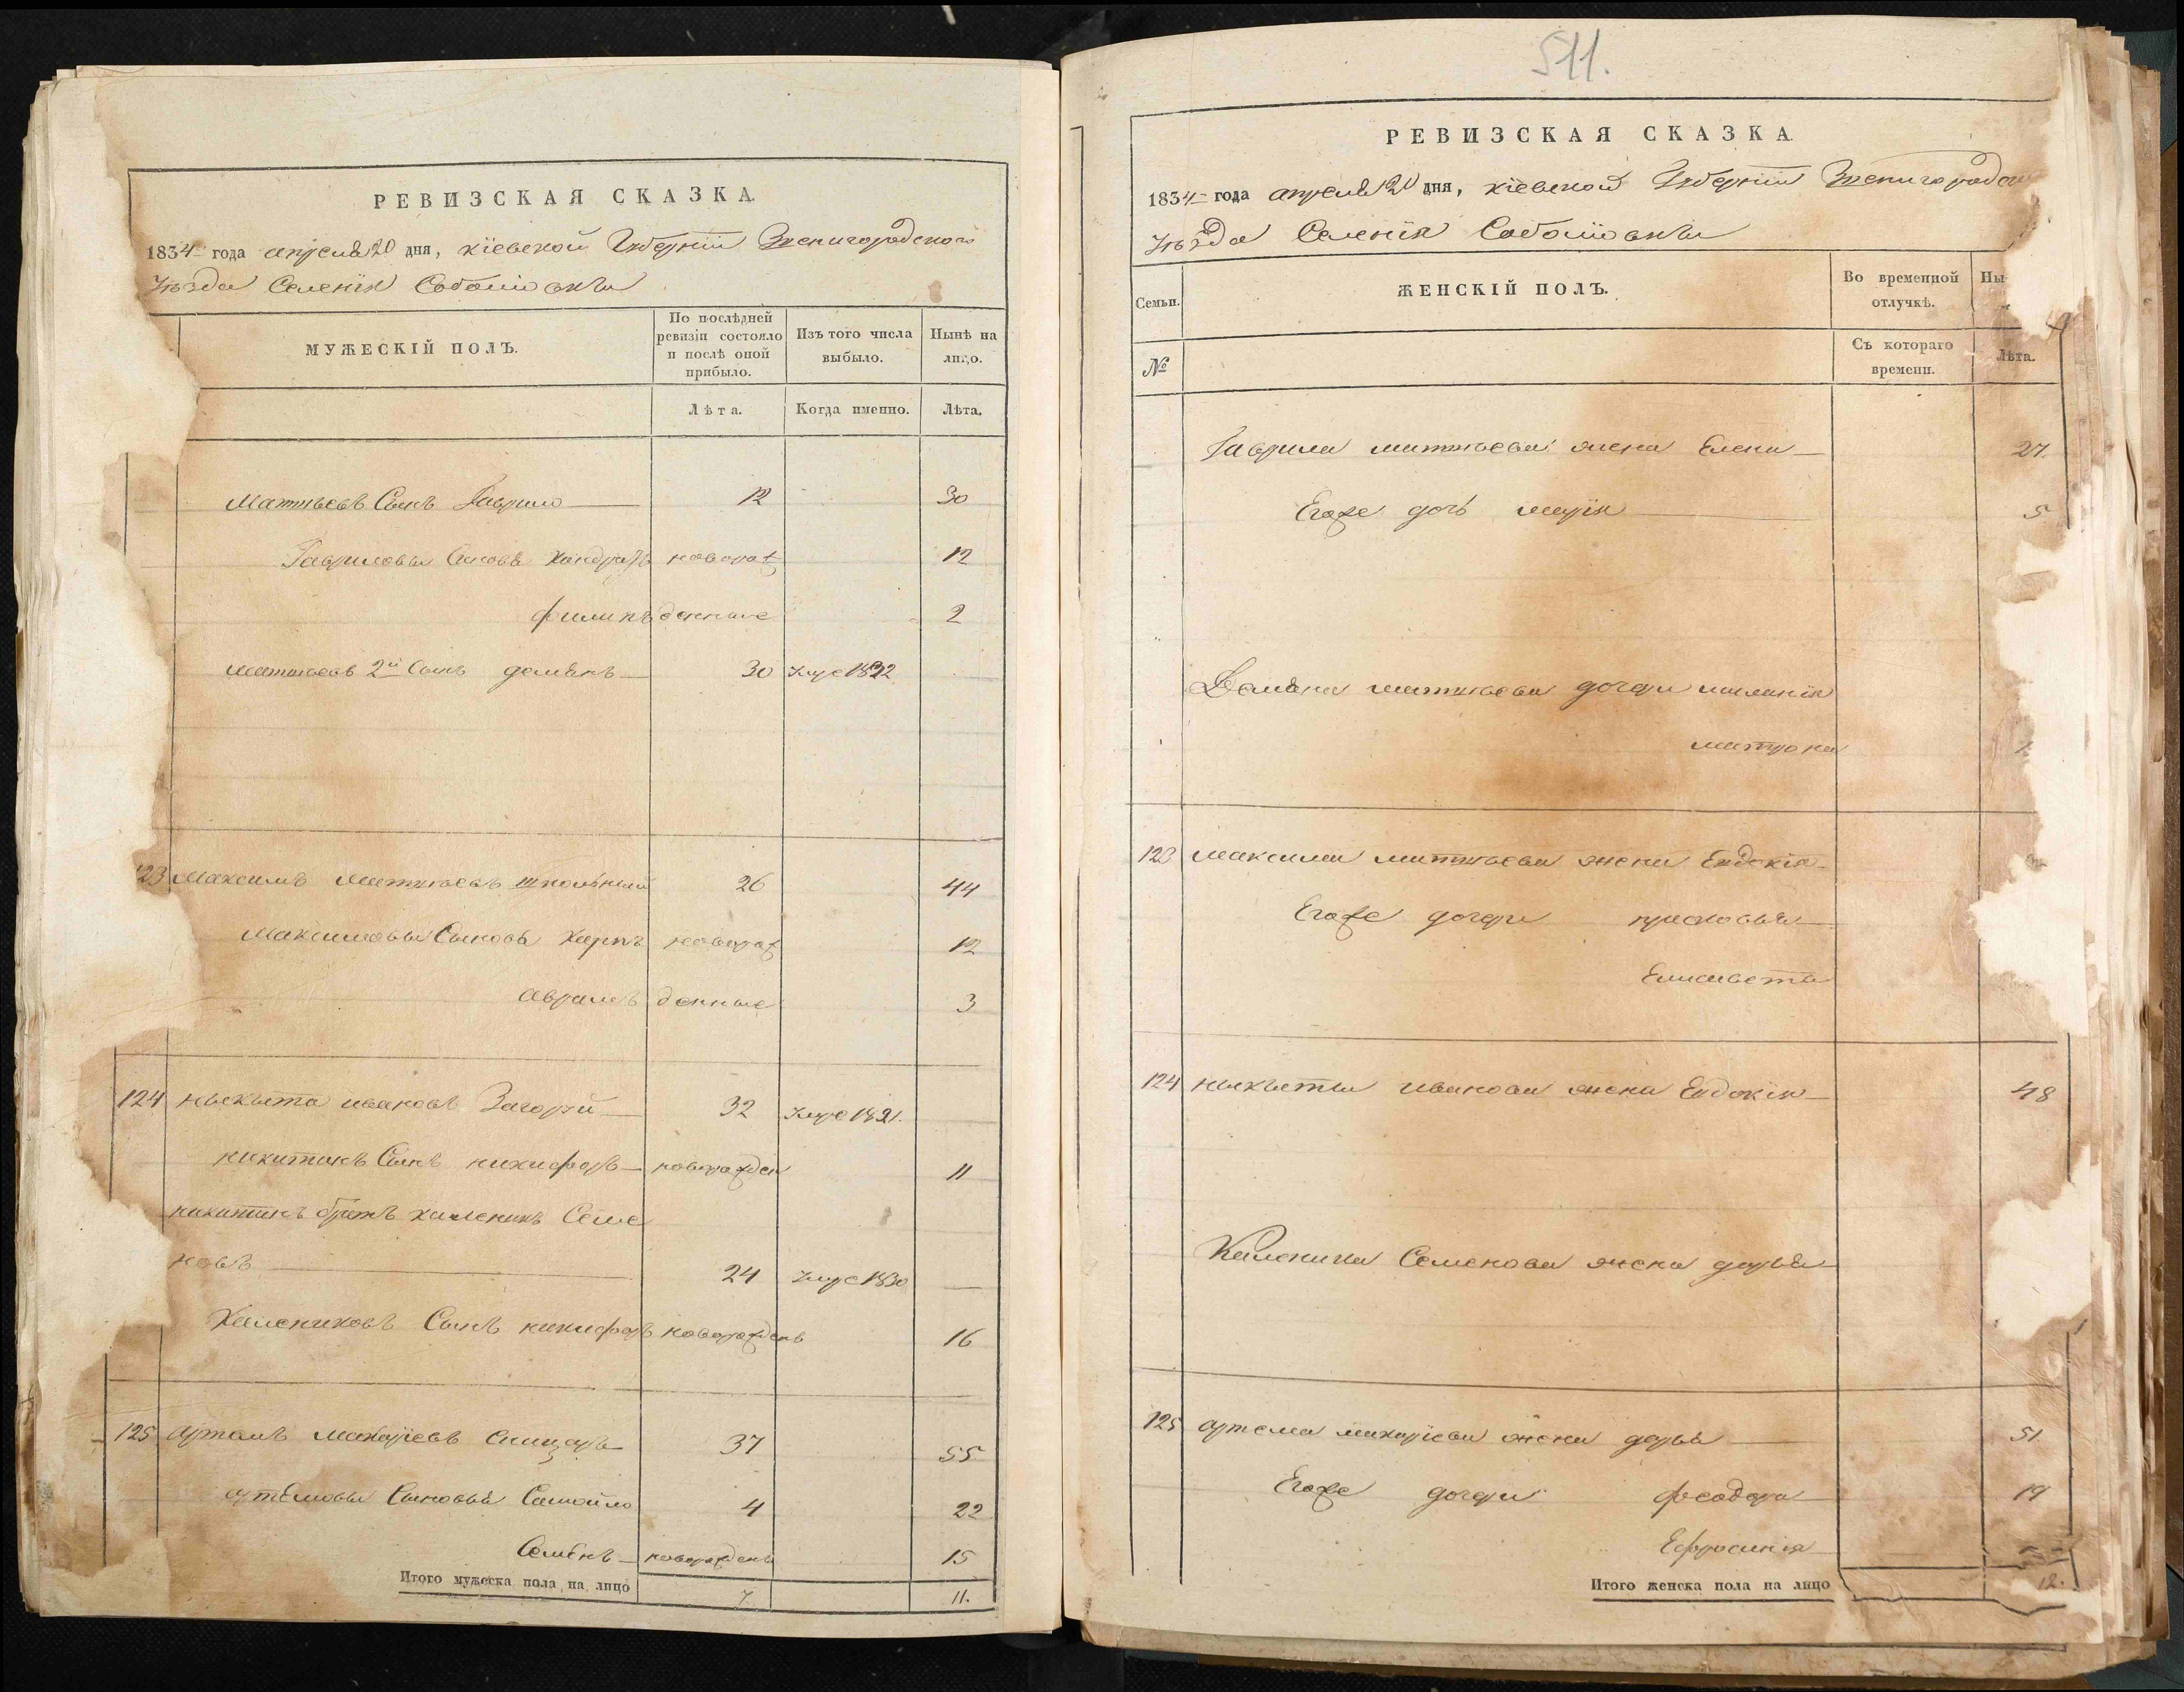 РЕВИЗСКАЯ СКАЗКА.
1834 года апреля 20 дня, кіевской Губерніи Звенигородского
Уѣзда Селенія Соболiовки
МУЖЕСКІЙ ПОЛЪ.
По послѣдней ревизіи состояло и послѣ оной прибыло.
Изъ того числа выбыло.
Нынѣ на лицо.
Лѣта.
Когда именно.
Лѣта.
Матвѣевъ Сынъ Гаврило 12 30
Гавриловы Сыновя Кондратъ новорож 12
филипъ денные 2
Матвѣевъ 2й Сынъ демянъ 30 Умре 1822
123 Максимъ Матвѣевъ 26 44
Максимовы Сыновя Карпъ новорож 12
Аврамъ денные 3
124 Ныкыта ивановъ Загоруй 32 Умре 1821.
никитинъ Сынъ никифоръ новорожден 11
никитинъ братъ каленикъ Семе
новъ 24 Умре 1830
Калениковъ Сынъ никифоръ новорожденъ 16
125 Артемъ Макаріевъ Сницаръ 37 55
артемовы Сыновья Самойло 4 22
Семенъ новорожденъ 15
Итого мужеска пола на лицо 7 11.
511.
РЕВИЗСКАЯ СКАЗКА.
1834 года апреля 20 дня, кіевской Губерніи
Уѣзда Селенія Соболiовки
Семьи.
ЖЕНСКІЙ ПОЛЪ.
Во временной отлучкѣ.
Ны
№
Съ котораго времени.
Лѣта.
Гаврила матвѣева жена Елена 27.
Егоже дочь марія 5
Демяна матвѣева дочери маланія
матрона
123 максима матвѣева жена Евдокія
Егоже дочери прасковья
Елисавета
124 ныкыты иванова жена Евдокія 48
Каленика Семенова жена дарья
125 артема макаріева жена дарья 51.
Егоже дочери феодора 19
Ефросинія
Итого женска пола на лицо 12.